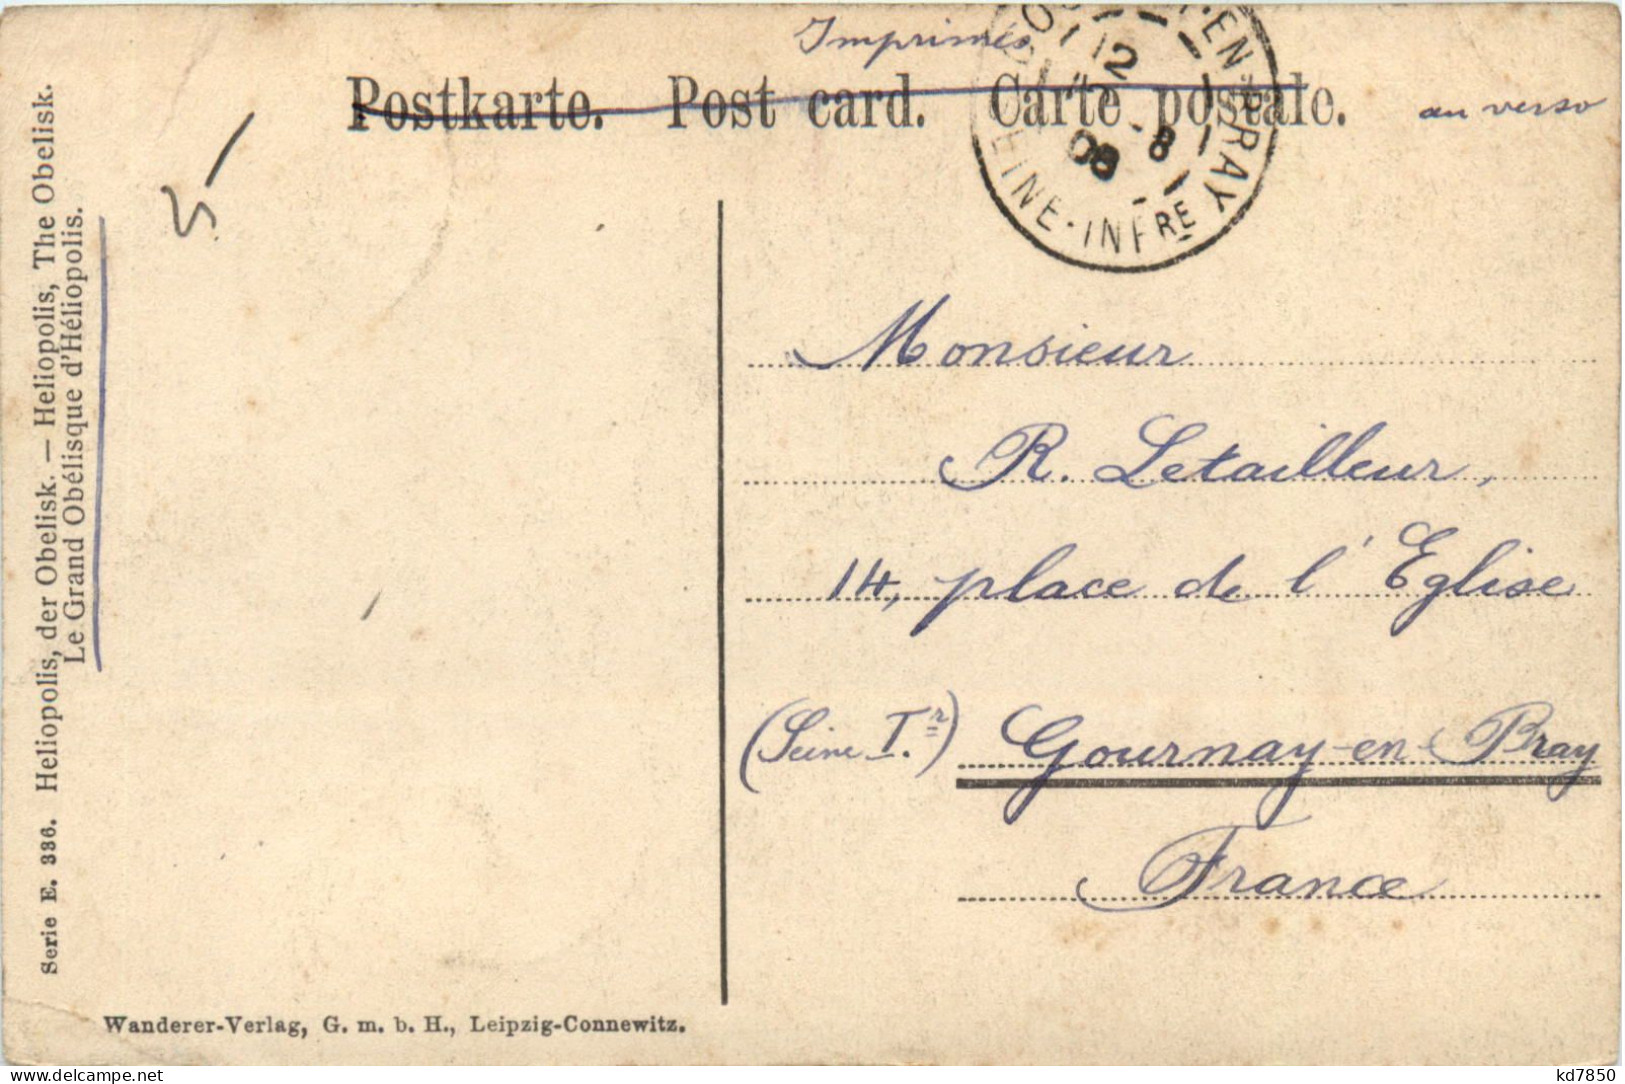 Imprimés
Postkarte. Post card. Carte postale.
au verso
EN-BRAY
12
8
08
INFRE
Serie E. 386. Heliopolis, der Obelisk. — Heliopolis, The Obelisk.
Le Grand Obélisque d'Héliopolis.
Monsieur
R. Letailleur,
14, place de l'Eglise
(Seine Ir.) Gournay-en-Bray
France
Wanderer-Verlag, G. m. b. H., Leipzig-Connewitz.
www.delcampe.net
kd7850